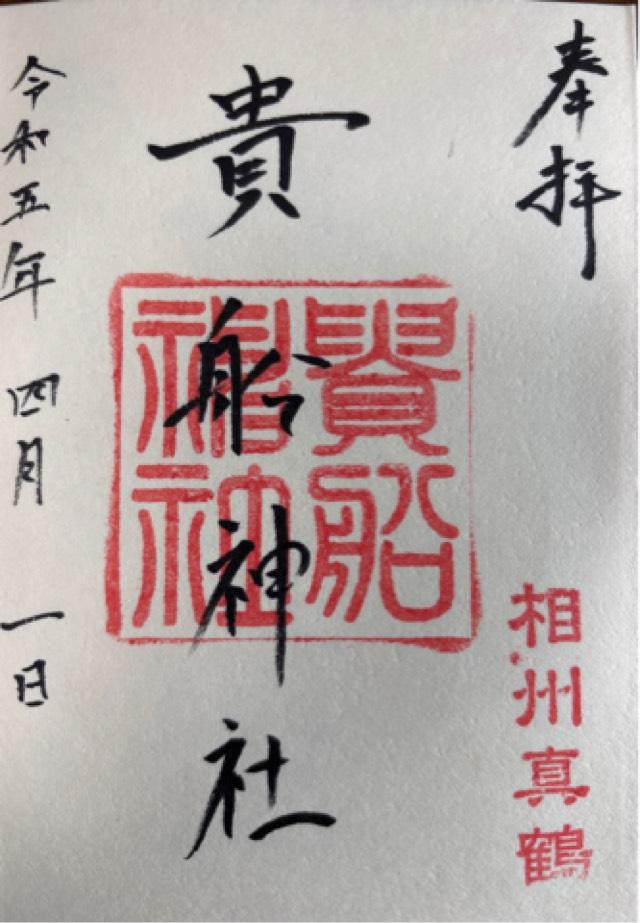 奉拝
相州真鶴
貴船神社
貴船神社
令和五年 四月 一日